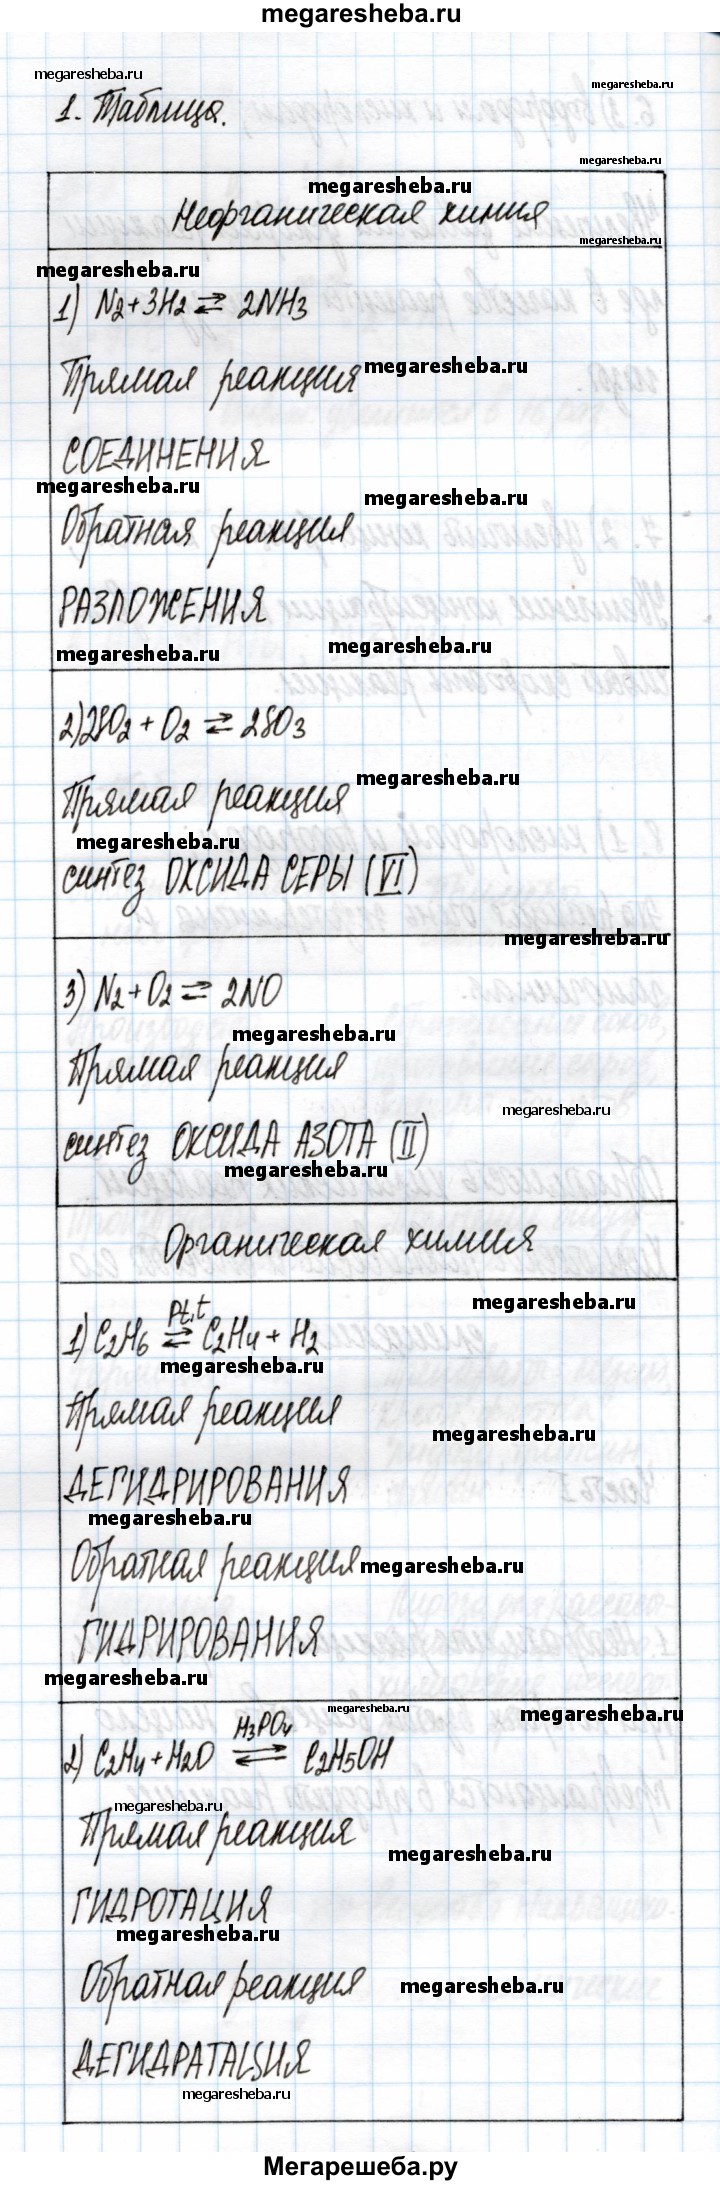 megaresheba.ru
megaresheba.ru
megaresheba.ru
1. Таблица.
megaresheba.ru
megaresheba.ru
Неорганическая химия
megaresheba.ru
megaresheba.ru
1) N2+3H2 ⇄ 2NH3
Прямая реакция megaresheba.ru
СОЕДИНЕНИЯ
megaresheba.ru
megaresheba.ru
Обратная реакция
РАЗЛОЖЕНИЯ
megaresheba.ru
megaresheba.ru
2)2SO2 + O2 ⇄ 2SO3
megaresheba.ru
Прямая реакция
megaresheba.ru
синтез ОКСИДА СЕРЫ (VI)
megaresheba.ru
3) N2+O2 ⇄ 2NO
megaresheba.ru
Прямая реакция
megaresheba.ru
синтез ОКСИДА АЗОТА (II)
megaresheba.ru
Органическая химия
megaresheba.ru
Pt,t
1) C2H6 ⇄ C2H4 + H2
megaresheba.ru
Прямая реакция
megaresheba.ru
ДЕГИДРИРОВАНИЯ
megaresheba.ru
Обратная реакция megaresheba.ru
ГИДРИРОВАНИЯ
megaresheba.ru
megaresheba.ru
megaresheba.ru
H3PO4
2) C2H4+H2O ⇄ C2H5OH
megaresheba.ru
Прямая реакция
megaresheba.ru
ГИДРОТАЦИЯ
megaresheba.ru
Обратная реакция megaresheba.ru
ДЕГИДРАТАЦИЯ
megaresheba.ru
Мегарешеба.ру